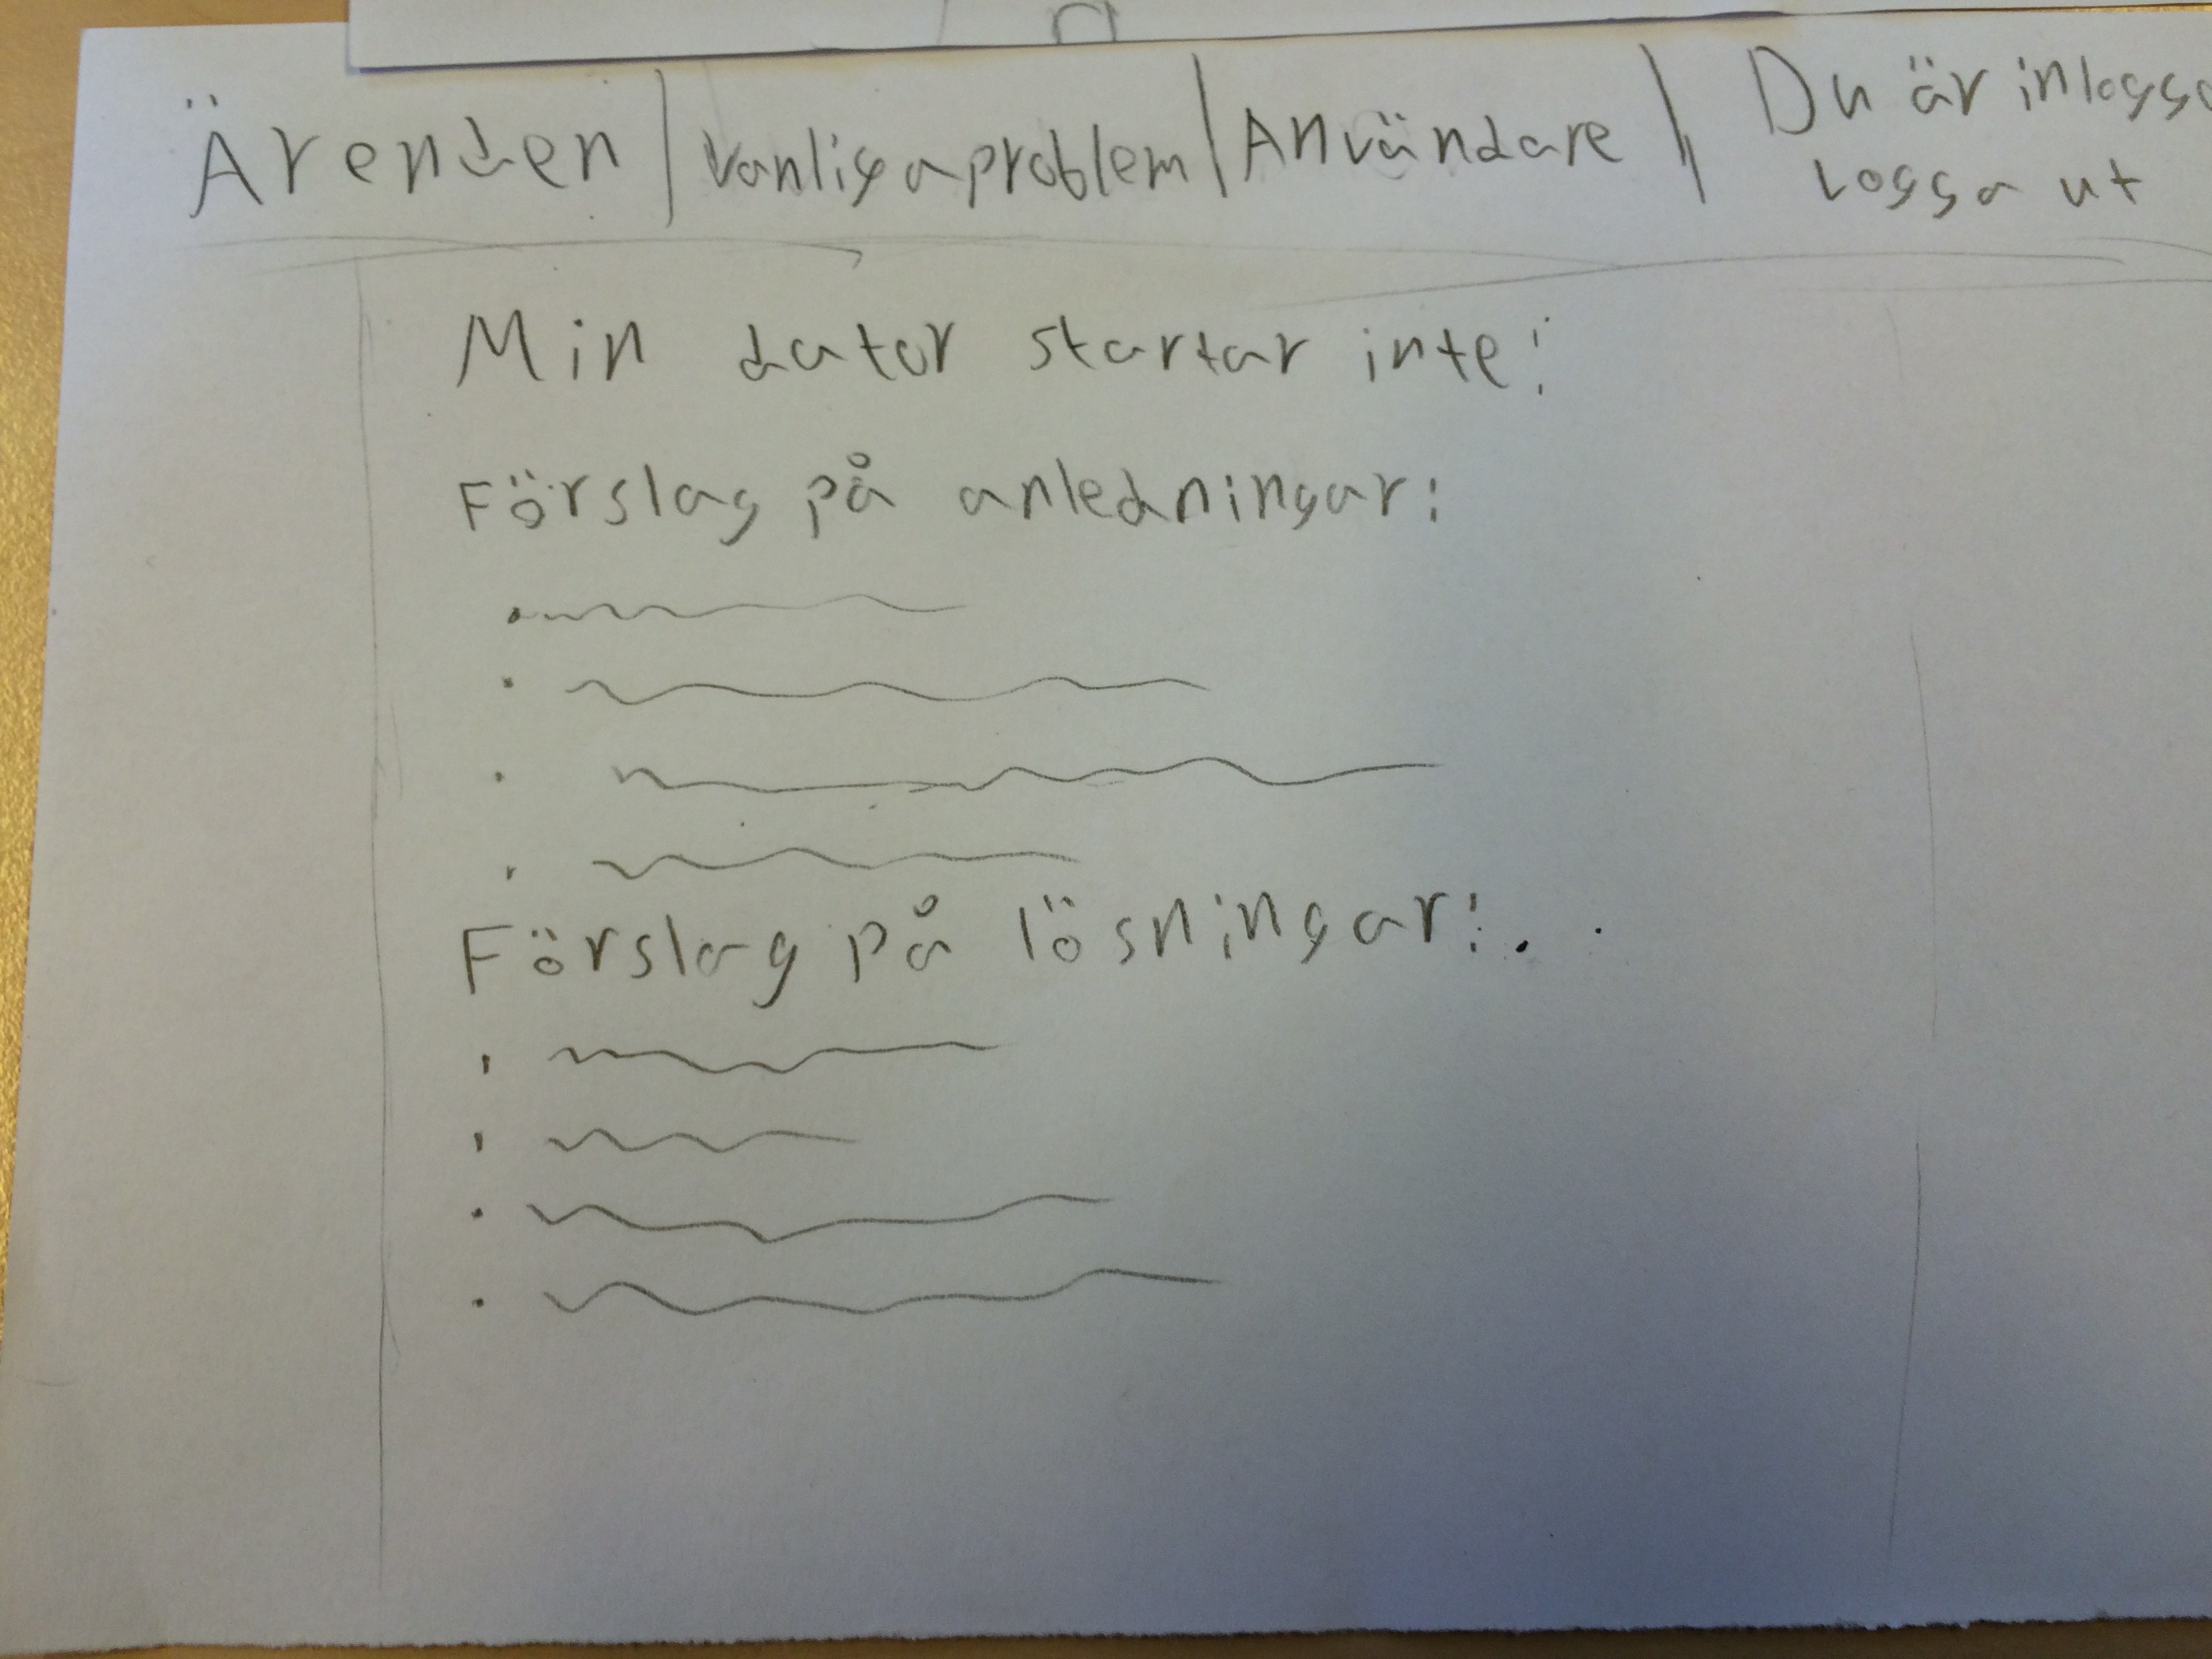 Ärenden | Vanliga problem | Användare | Du är inlogga
Logga ut
Min dator startar inte!
Förslag på anledningar:
Förslag på lösningar: